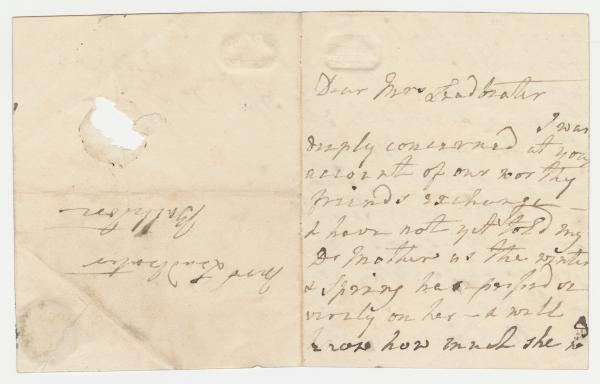 Dear Mrs Leadbeater
I was
deeply concerned at your
account of our worthy
friends exchange —
I have not yet told my
Dr Mother as the winter
& spring has pressed se
verely on her — I will
know how much she
Mrs Leadbeater
Ballitore